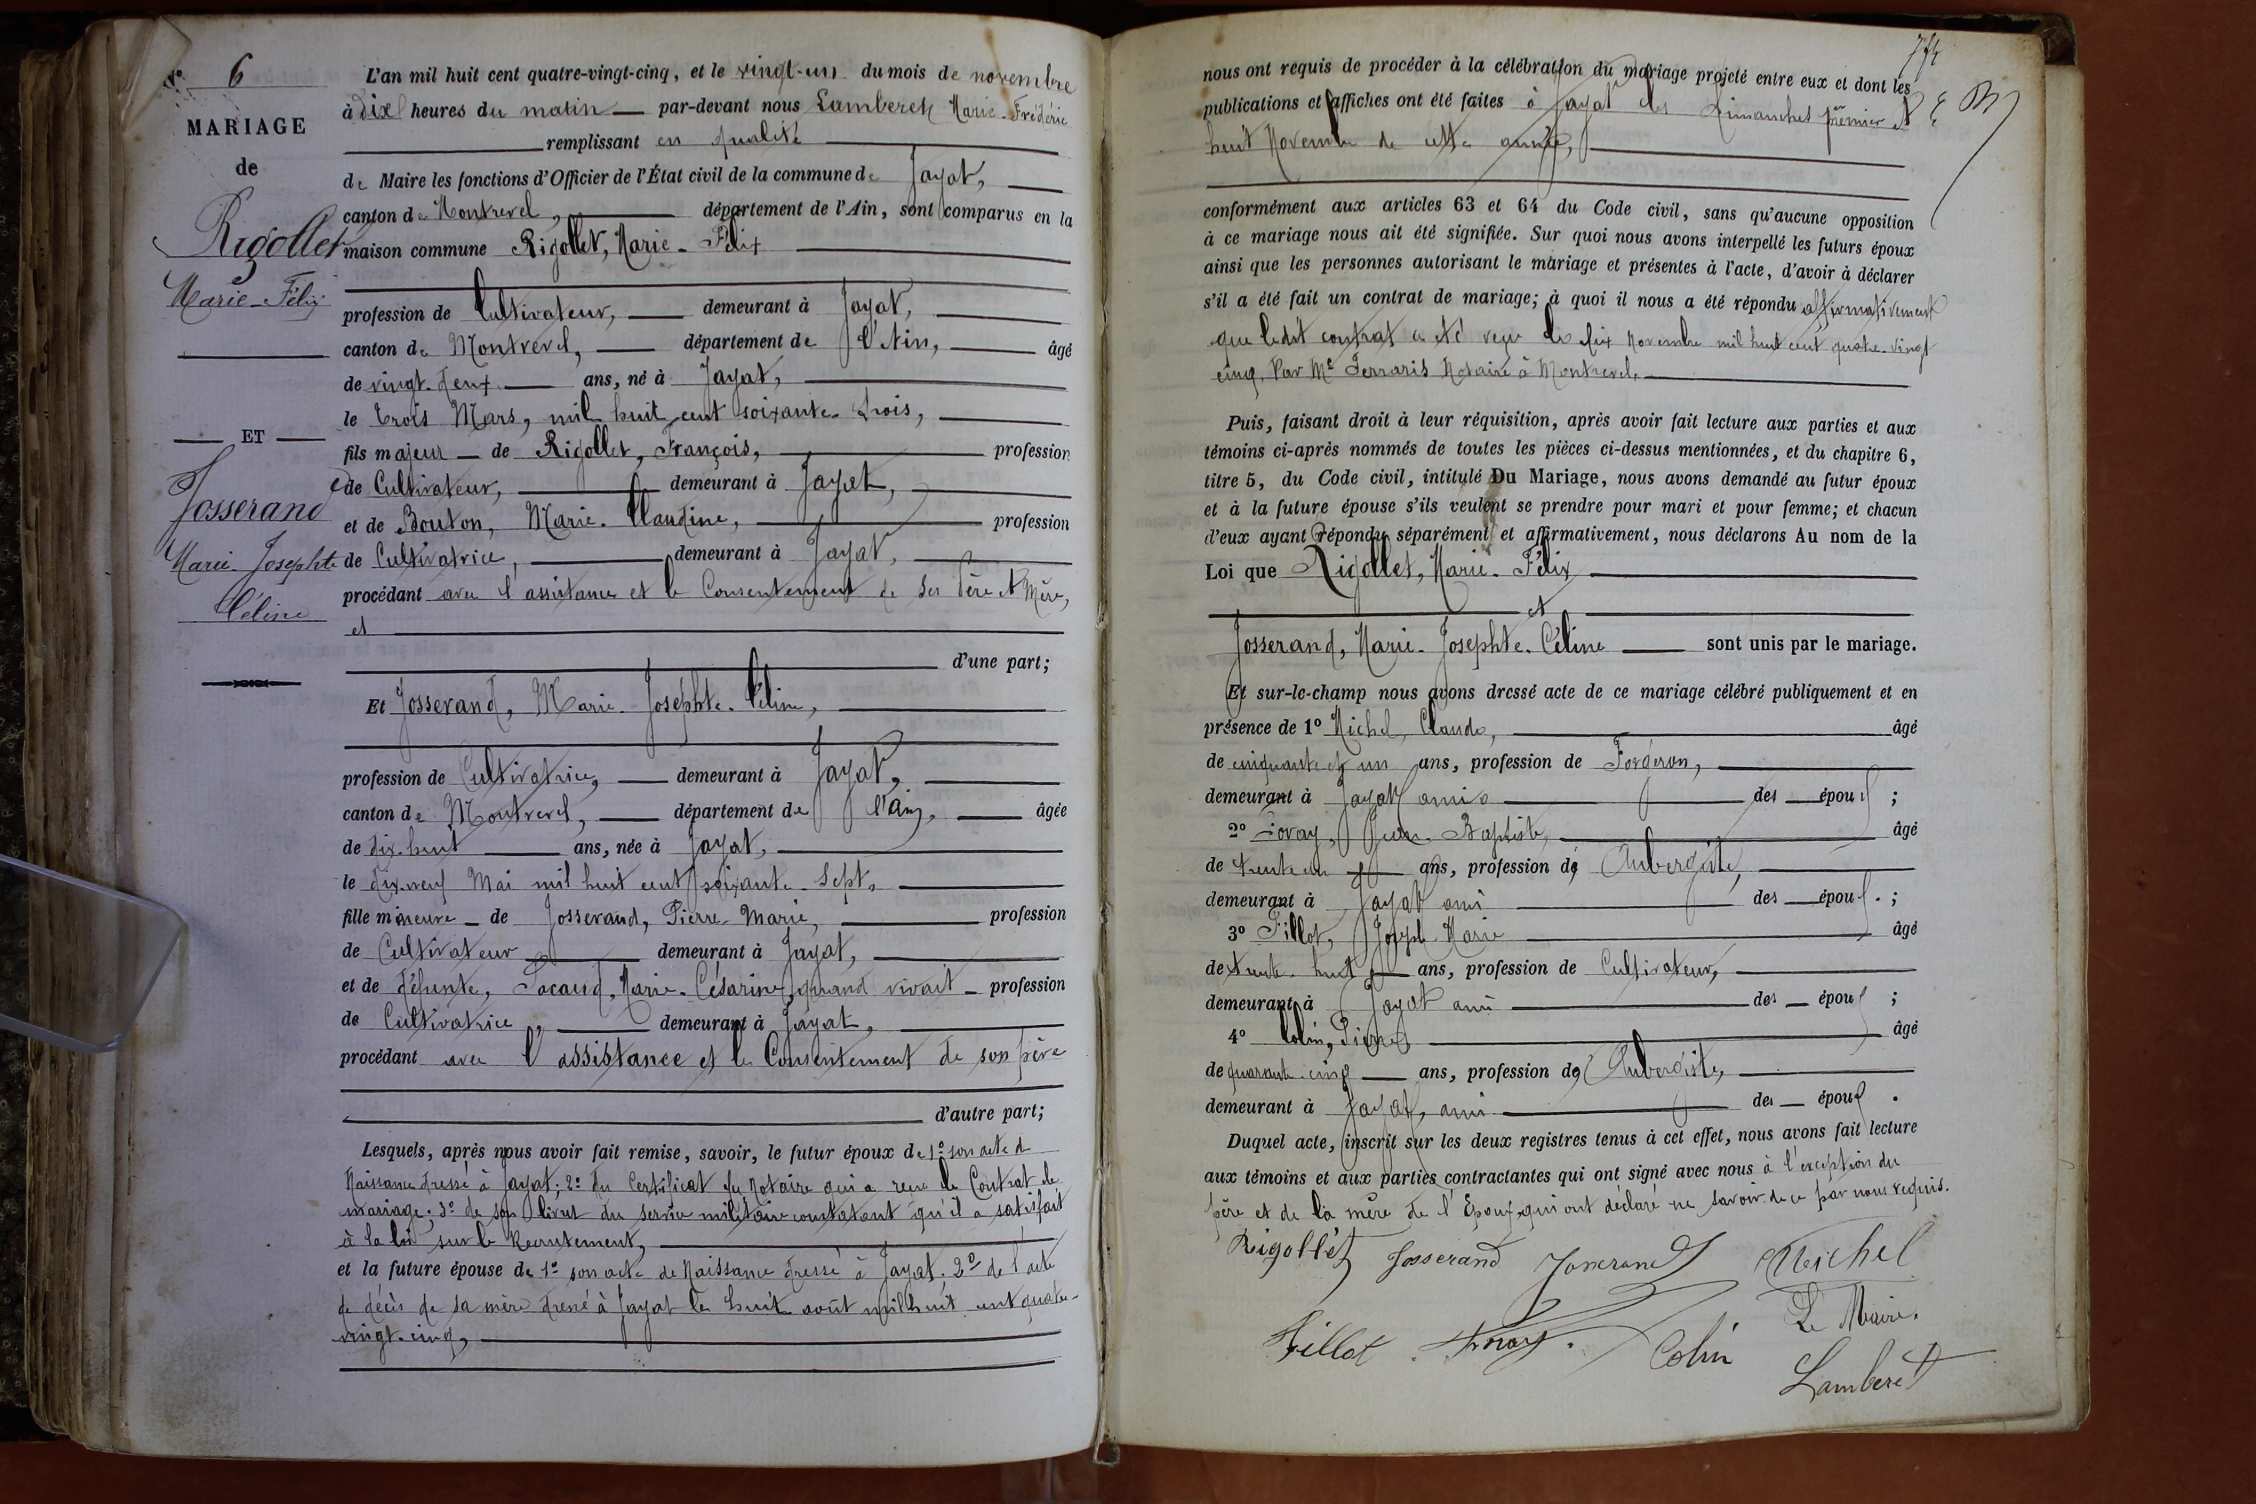 N° 6
MARIAGE
de
Rigollet
Marie-Félix
ET
Josserand
Marie-Josephte
Céline
L'an mil huit cent quatre-vingt-cinq, et le vingt-un du mois de novembre
à dix heures du matin par-devant nous Lamberet Marie-Frédéric
remplissant en qualité
de Maire les fonctions d'Officier de l'État civil de la commune de Jayat,
canton de Montrevel, département de l'Ain, sont comparus en la
maison commune Rigollet, Marie-Félix
profession de Cultivateur, demeurant à Jayat,
canton de Montrevel, département de l'Ain, âgé
de vingt-deux ans, né à Jayat,
le trois Mars, mil huit cent soixante-trois,
fils majeur de Rigollet, François, profession
de Cultivateur, demeurant à Jayat,
et de Bouton, Marie-Claudine, profession
de Cultivatrice, demeurant à Jayat,
procédant avec l'assistance et le Consentement de ses Père et Mère,
et
d'une part;
Et Josserand, Marie-Josephte-Céline,
profession de Cultivatrice, demeurant à Jayat,
canton de Montrevel, département de l'Ain, âgée
de dix-huit ans, née à Jayat,
le dix-neuf Mai mil huit cent soixante-sept,
fille mineure de Josserand, Pierre-Marie, profession
de Cultivateur demeurant à Jayat,
et de défunte, Pacaud, Marie-Césarine, quand vivait profession
de Cultivatrice, demeurant à Jayat,
procédant avec l'assistance et le Consentement de son père
d'autre part;
Lesquels, après nous avoir fait remise, savoir, le futur époux de 1° son acte de
Naissance dressé à Jayat; 2° du Certificat du Notaire qui a reçu le Contrat de
mariage; 3° de son livret du service militaire constatant qu'il a satisfait
à la loi sur le Recrutement,
et la future épouse de 1° son acte de Naissance dressé à Jayat. 2° de l'acte
de décès de sa mère dressé à Jayat le huit août mil huit cent quatre-
vingt-cinq,
nous ont requis de procéder à la célébration du mariage projeté entre eux et dont les
publications et affiches ont été faites à Jayat les Dimanches premier et
huit Novembre de cette année,
conformément aux articles 63 et 64 du Code civil, sans qu'aucune opposition
à ce mariage nous ait été signifiée. Sur quoi nous avons interpellé les futurs époux
ainsi que les personnes autorisant le mariage et présentes à l'acte, d'avoir à déclarer
s'il a été fait un contrat de mariage; à quoi il nous a été répondu affirmativement
que ledit contrat a été reçu le dix Novembre mil huit cent quatre-vingt
cinq, Par Me Ferraris Notaire à Montrevel,
Puis, faisant droit à leur réquisition, après avoir fait lecture aux parties et aux
témoins ci-après nommés de toutes les pièces ci-dessus mentionnées, et du chapitre 6,
titre 5, du Code civil, intitulé Du Mariage, nous avons demandé au futur époux
et à la future épouse s'ils veulent se prendre pour mari et pour femme; et chacun
d'eux ayant répondu séparément et affirmativement, nous déclarons Au nom de la
Loi que Rigollet, Marie-Félix
et
Josserand, Marie-Josephte-Céline sont unis par le mariage.
Et sur-le-champ nous avons dressé acte de ce mariage célébré publiquement et en
présence de 1° Michel, Claude, âgé
de cinquante et un ans, profession de Forgeron,
demeurant à Jayat, ami des époux;
2° Jean-Baptiste, âgé
de trente un ans, profession de Aubergiste,
demeurant à Jayat ami des époux;
3° Fillot, Joseph-Marie âgé
de trente-huit ans, profession de Cultivateur,
demeurant à Jayat ami des époux;
4° Colin, Pierre âgé
de quarante-cinq ans, profession de Aubergiste,
demeurant à Jayat, ami des époux.
Duquel acte, inscrit sur les deux registres tenus à cet effet, nous avons fait lecture
aux témoins et aux parties contractantes qui ont signé avec nous à l'exception du
père et de la mère de l'Époux, qui ont déclaré ne savoir de ce par nous requis.
Rigollet Josserand Josserand Michel
Le Maire.
Fillot Colin
Lamberet